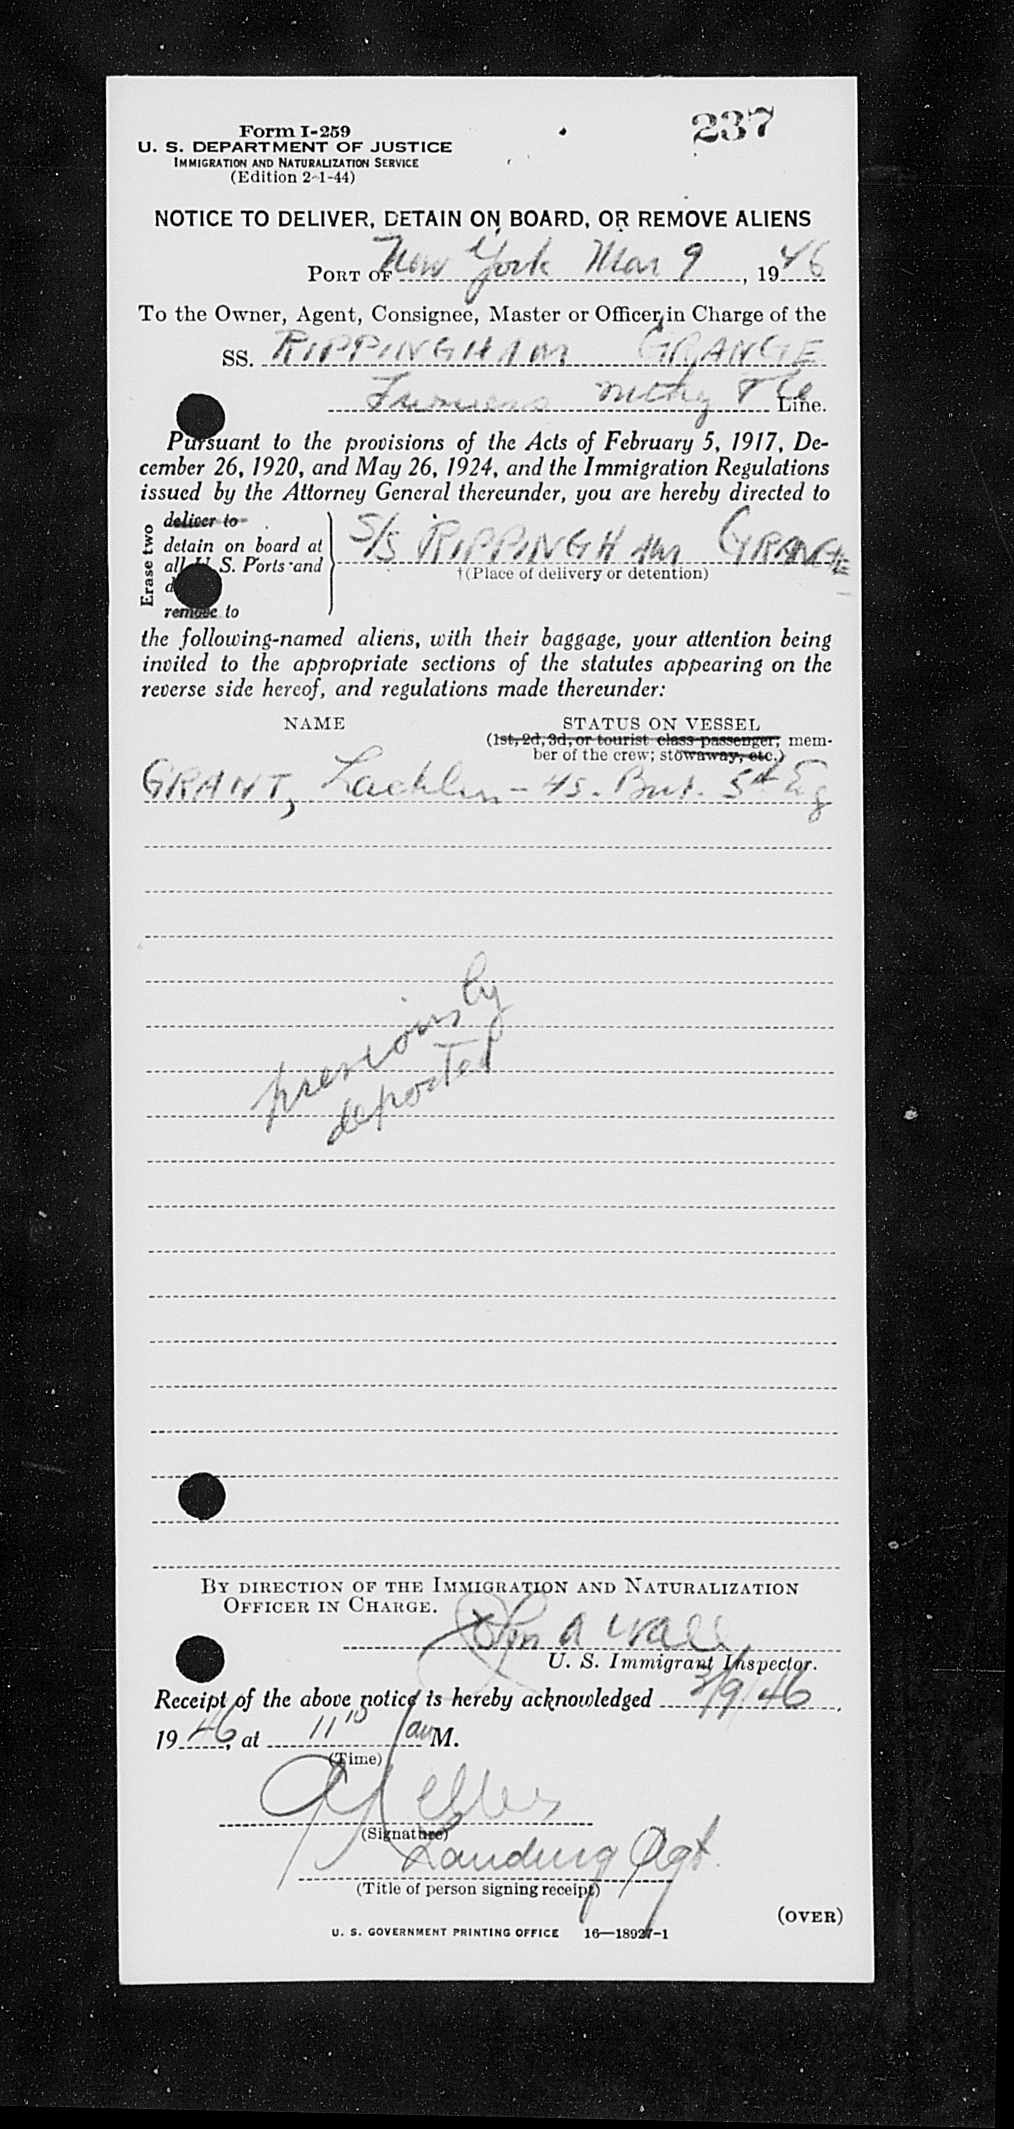 237
Form I-259
U. S. DEPARTMENT OF JUSTICE
IMMIGRATION AND NATURALIZATION SERVICE
(Edition 2-1-44)
NOTICE TO DELIVER, DETAIN ON BOARD, OR REMOVE ALIENS
PORT OF New York Mar 9, 1946
To the Owner, Agent, Consignee, Master or Officer in Charge of the
SS. RIPPINGHAM GRANGE
Line.
Pursuant to the provisions of the Acts of February 5, 1917, De-
cember 26, 1920, and May 26, 1924, and the Immigration Regulations
issued by the Attorney General thereunder, you are hereby directed to
Erase two
deliver to
detain on board at
all U. S. Ports and
remove to
S/S RIPPINGHAM GRANGE
†(Place of delivery or detention)
the following-named aliens, with their baggage, your attention being
invited to the appropriate sections of the statutes appearing on the
reverse side hereof, and regulations made thereunder:
NAME
STATUS ON VESSEL
(1st, 2d, 3d, or tourist class passenger; mem-
ber of the crew; stowaway, etc.)
GRANT, Lachlin - 45. Brit. 5th Eg
previously
deported
BY DIRECTION OF THE IMMIGRATION AND NATURALIZATION
OFFICER IN CHARGE.
John A Wall
U. S. Immigrant Inspector.
Receipt of the above notice is hereby acknowledged 3/9/46,
1946, at 11 10 am M.
(Time)
(Signature)
Landing Agt.
(Title of person signing receipt)
(OVER)
U. S. GOVERNMENT PRINTING OFFICE 16—18927-1